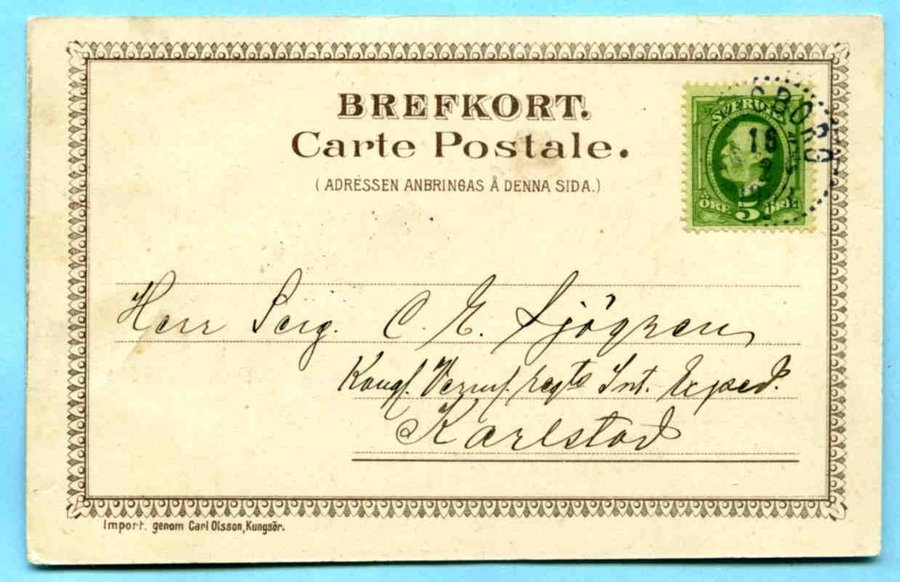 BREFKORT.
Carte Postale.
(ADRESSEN ANBRINGAS Å DENNA SIDA.)
SVERIGE
16
2
ÖRE 5 ÖRE
Herr Serg. C. E. Sjögren
Kongl. Verml. regts Int. Exped.
Karlstad
Import. genom Carl Olsson, Kungsör.